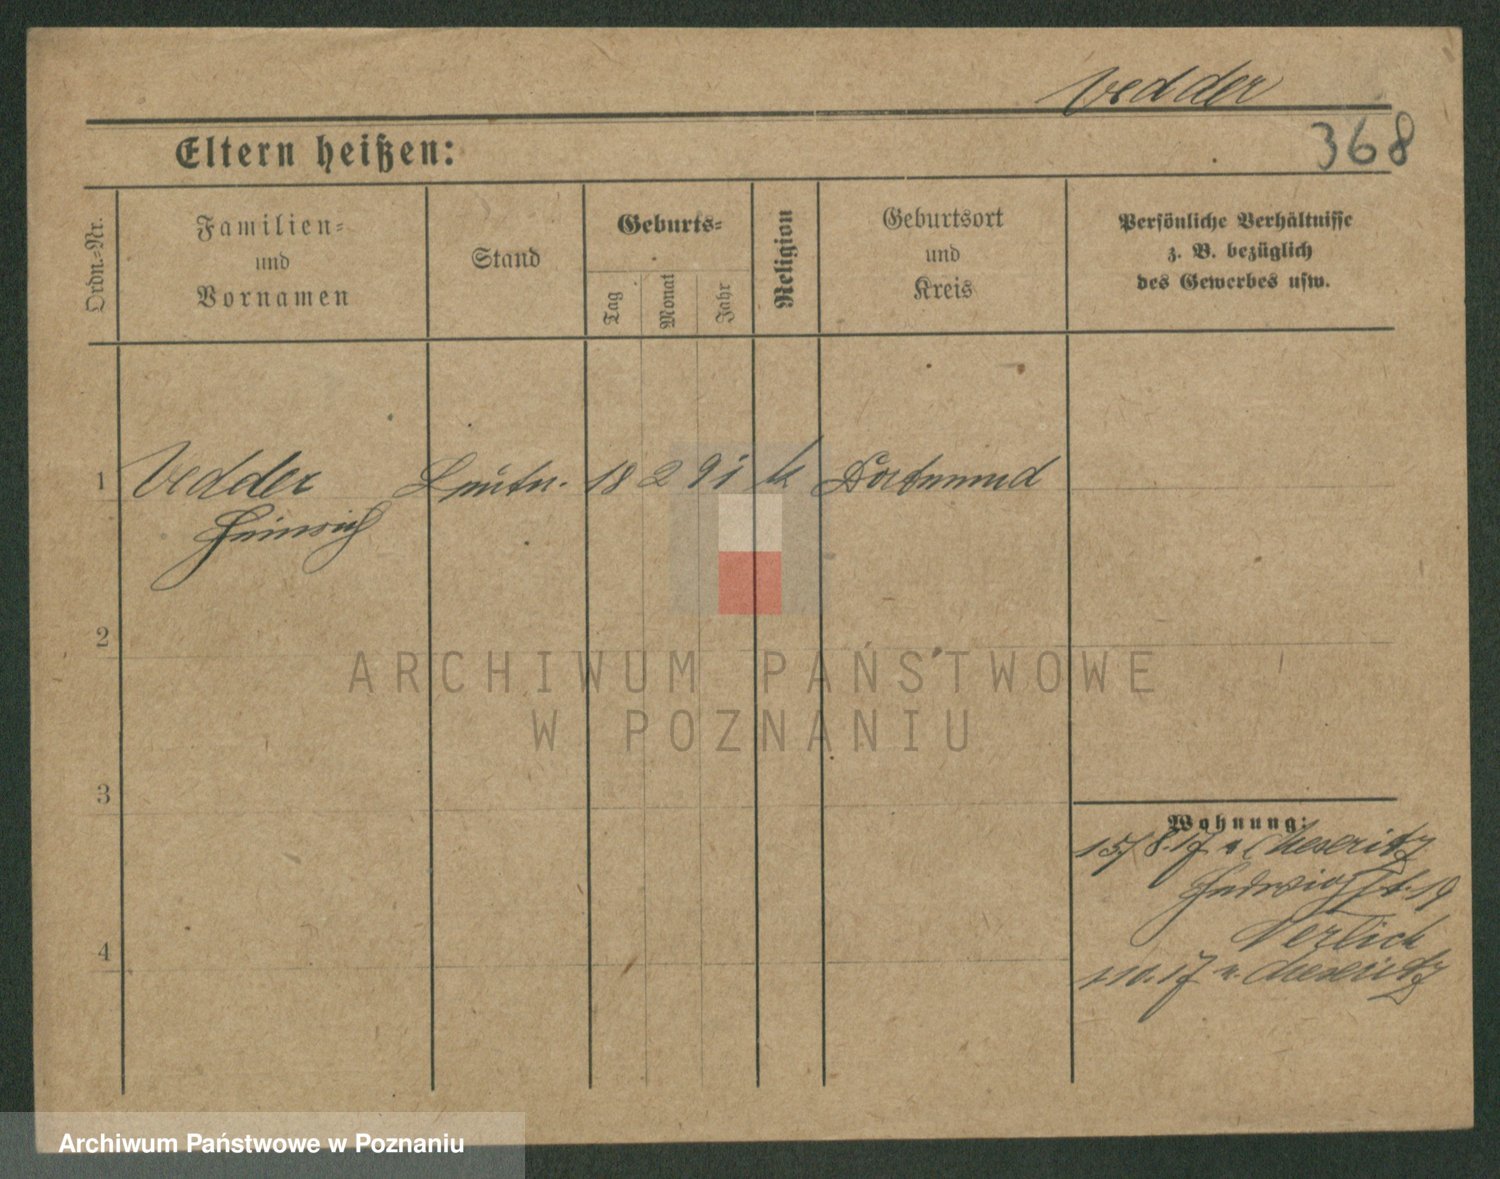 Vedder
368
Eltern heißen:
Ordn.-Nr.
Familien-
und
Vornamen
Stand
Geburts-
Tag
Monat
Jahr
Religion
Geburtsort
und
Kreis
Persönliche Verhältnisse
z. B. bezüglich
des Gewerbes usw.
1 Vedder Leutn. 18 2 91 k Dortmund
Heinrich
2
3
4
Wohnung:
15/8.17 v. Meseritz
Hedwigst. 19
1.10.17 n. Meseritz
ARCHIWUM PAŃSTWOWE
W POZNANIU
Archiwum Państwowe w Poznaniu